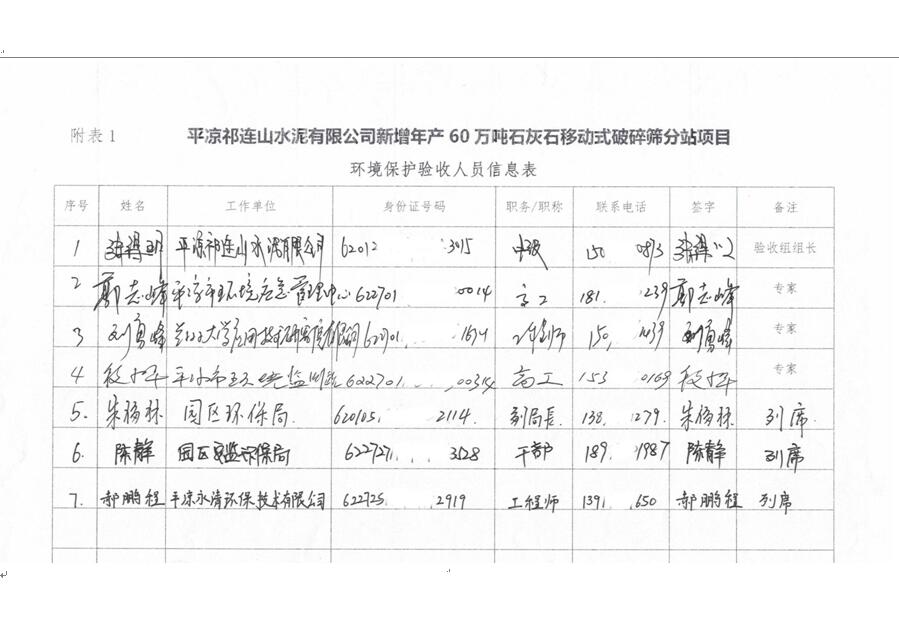 附表1 平凉祁连山水泥有限公司新增年产60万吨石灰石移动式破碎筛分站项目
环境保护验收人员信息表
序号 姓名 工作单位 身份证号码 职务/职称 联系电话 签字 备注
1 平凉祁连山水泥有限公司 62012 3415 150 0813 验收组组长
2 郭志峰 平凉市环境应急管理中心 622701 0014 高工 181 239 郭志峰 专家
3 刘勇峰 150 1039 刘勇峰 专家
4 622701 0034 高工 153 0169 专家
5. 朱杨林 园区环保局. 620105 2114. 副局长. 138 279. 朱杨林 列席.
6. 陈静 园区安监环保局 622727 3528 干部 189. 1987 陈静 列席
7. 郝鹏程 平凉永清环保技术有限公司 622725 2919 工程师 1391 650 郝鹏程 列席